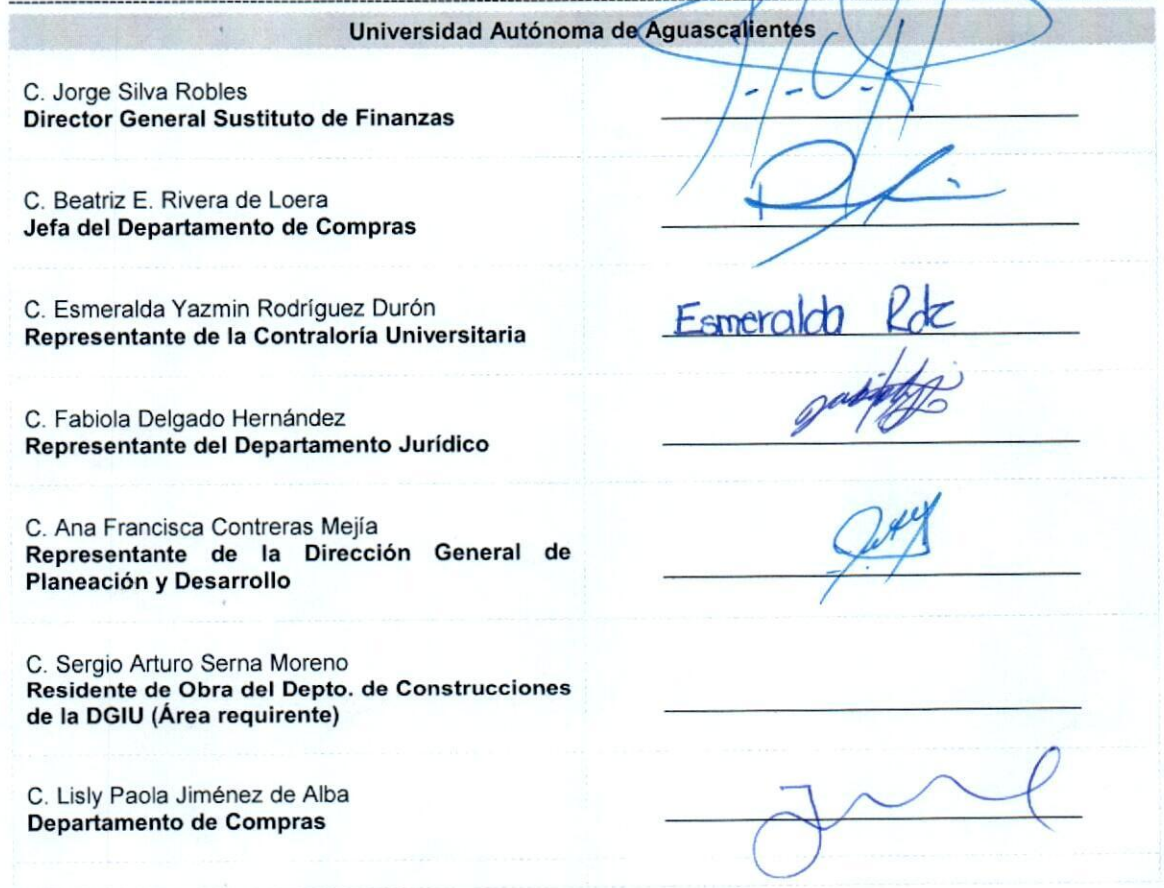 Universidad Autónoma de Aguascalientes
C. Jorge Silva Robles
Director General Sustituto de Finanzas
C. Beatriz E. Rivera de Loera
Jefa del Departamento de Compras
C. Esmeralda Yazmin Rodríguez Durón
Representante de la Contraloría Universitaria
Esmeralda Rdz
C. Fabiola Delgado Hernández
Representante del Departamento Jurídico
C. Ana Francisca Contreras Mejía
Representante de la Dirección General de
Planeación y Desarrollo
C. Sergio Arturo Serna Moreno
Residente de Obra del Depto. de Construcciones
de la DGIU (Área requirente)
C. Lisly Paola Jiménez de Alba
Departamento de Compras